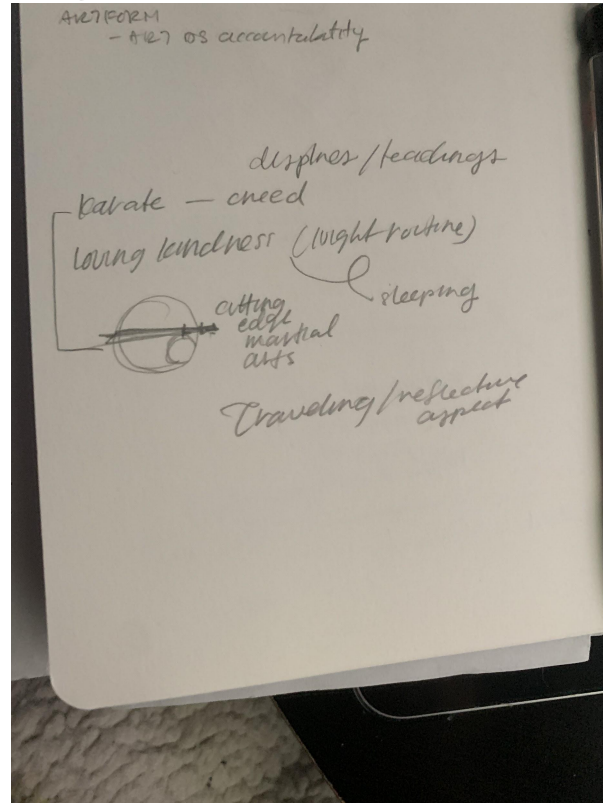 ARTFORM
- ART OS accountability
displnes / teachings
karate — creed
loving kindness (night routine)
sleeping
cutting
edge
martial
arts
Traveling / reflective
aspect